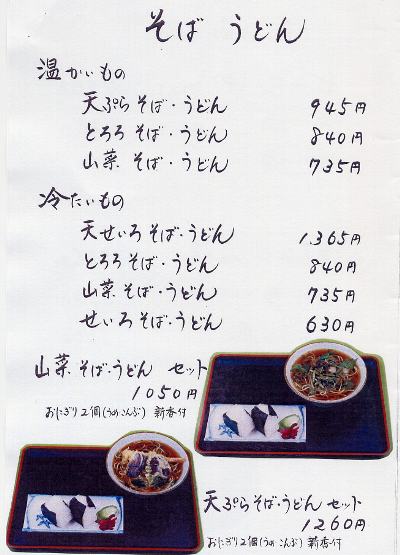 そば うどん
温かいもの
天ぷらそば・うどん 945円
とろろそば・うどん 840円
山菜そば・うどん 735円
冷たいもの
天せいろそば・うどん 1,365円
とろろそば・うどん 840円
山菜そば・うどん 735円
せいろそば・うどん 630円
山菜そば・うどん セット
1050円
おにぎり2個(うめこんぶ) 新香付
天ぷらそば・うどん セット
1260円
おにぎり2個(うめこんぶ) 新香付